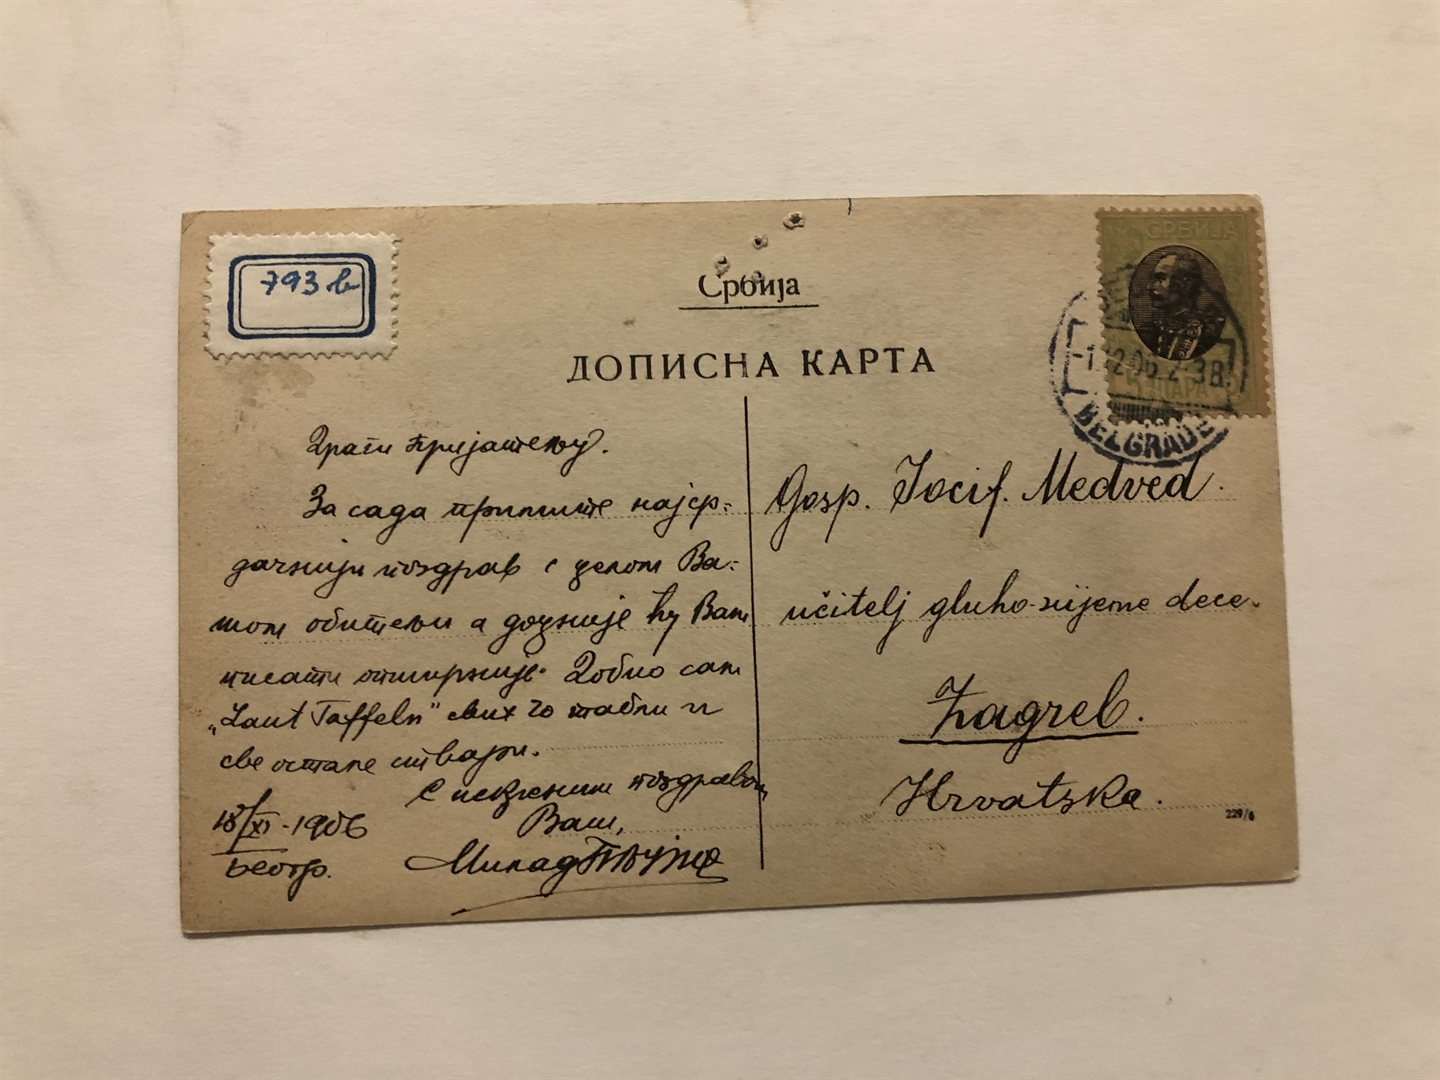 793 b
Србија
ДОПИСНА КАРТА
СРБИЈА
5 ПАРА
-1.12.06.2-3B.
BELGRADE
Драги пријатељу.
За сада примите најср-
дачнији поздрав с целом Ва-
шом обитељи а доцније ћу Вам
писати опширније. Добио сам
„Laut Taffeln" свих 20 табли и
све остале ствари.
С искреним поздравом
Ваш,
18/XI-1906
Београ.
Gosp. Jocif. Medved.
učitelj gluho-nijeme dece.
Zagreb.
Hrvatska.
229/6